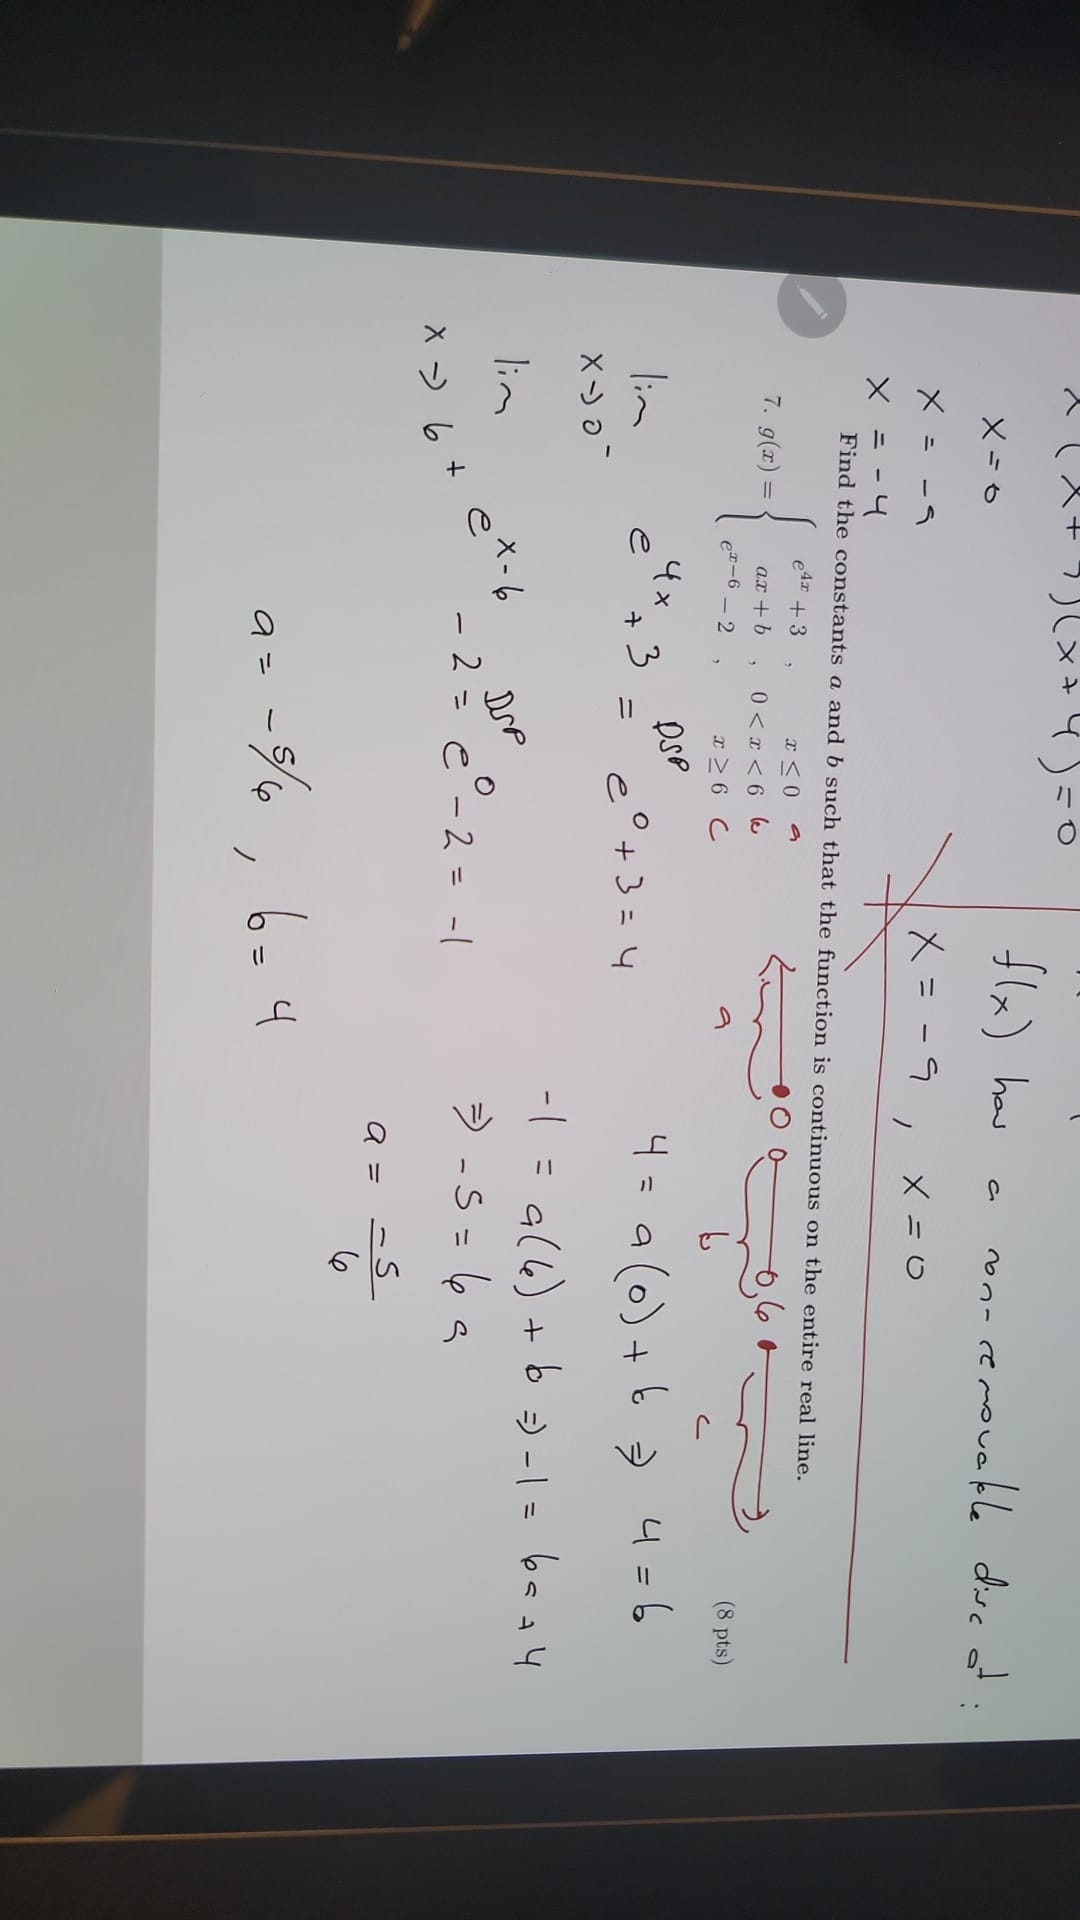 x (x+9)(x+4)=0
x=0
f(x) has a non-removable disc at:
x = -9
x = -9, x=0
x = -4
Find the constants a and b such that the function is continuous on the entire real line.
7. g(x) = { e^{4x} + 3 , x ≤ 0 a
ax + b , 0 < x < 6 b
e^{x-6} - 2 , x ≥ 6 c
(8 pts)
0 6
a b c
lim x→0⁻ e^{4x} + 3 = DSP e^0 + 3 = 4
4 = a(0) + b ⇒ 4 = b
lim x→6⁺ e^{x-6} - 2 = DSP e^0 - 2 = -1
-1 = a(6) + b ⇒ -1 = 6a + 4
⇒ -5 = 6a
a = -5/6
a = -5/6 , b = 4